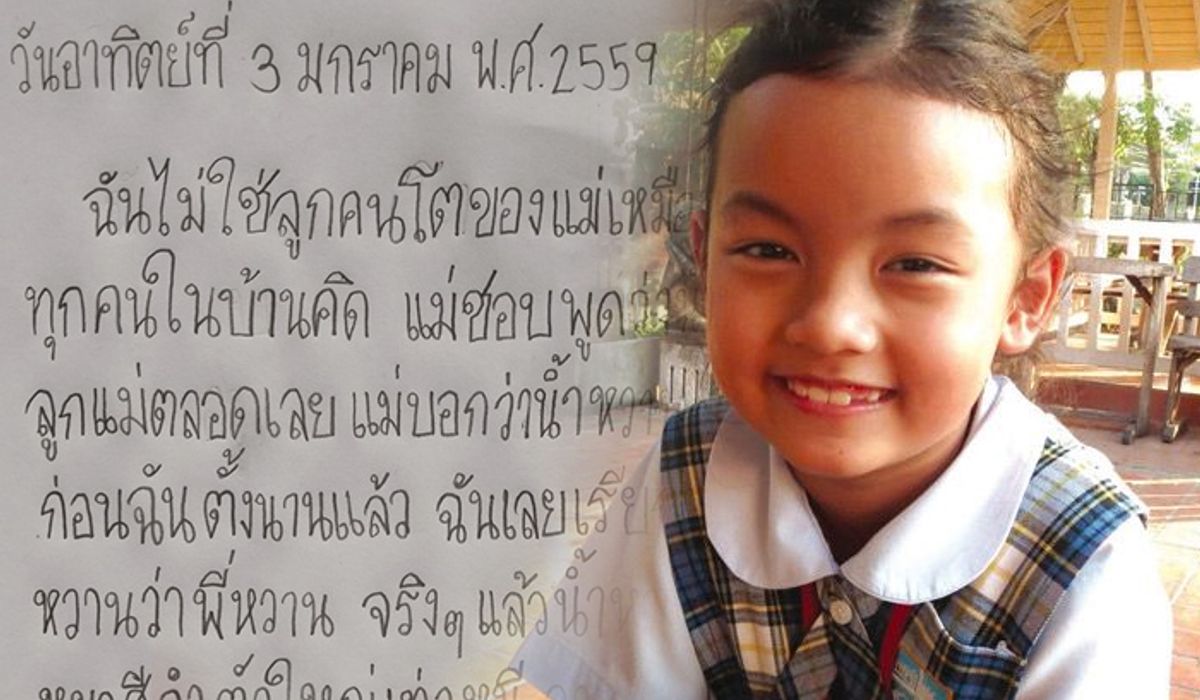 วันอาทิตย์ที่ 3 มกราคม พ.ศ.2559
ฉันไม่ใช่ลูกคนโตของแม่
ทุกคนในบ้านคิด แม่ชอบพูดว่า
ลูกแม่ตลอดเลย แม่บอกว่าน้ำ
ก่อนฉันตั้งนานแล้ว ฉันเลย
หวานว่าพี่หวาน จริงๆ แล้วน้ำ